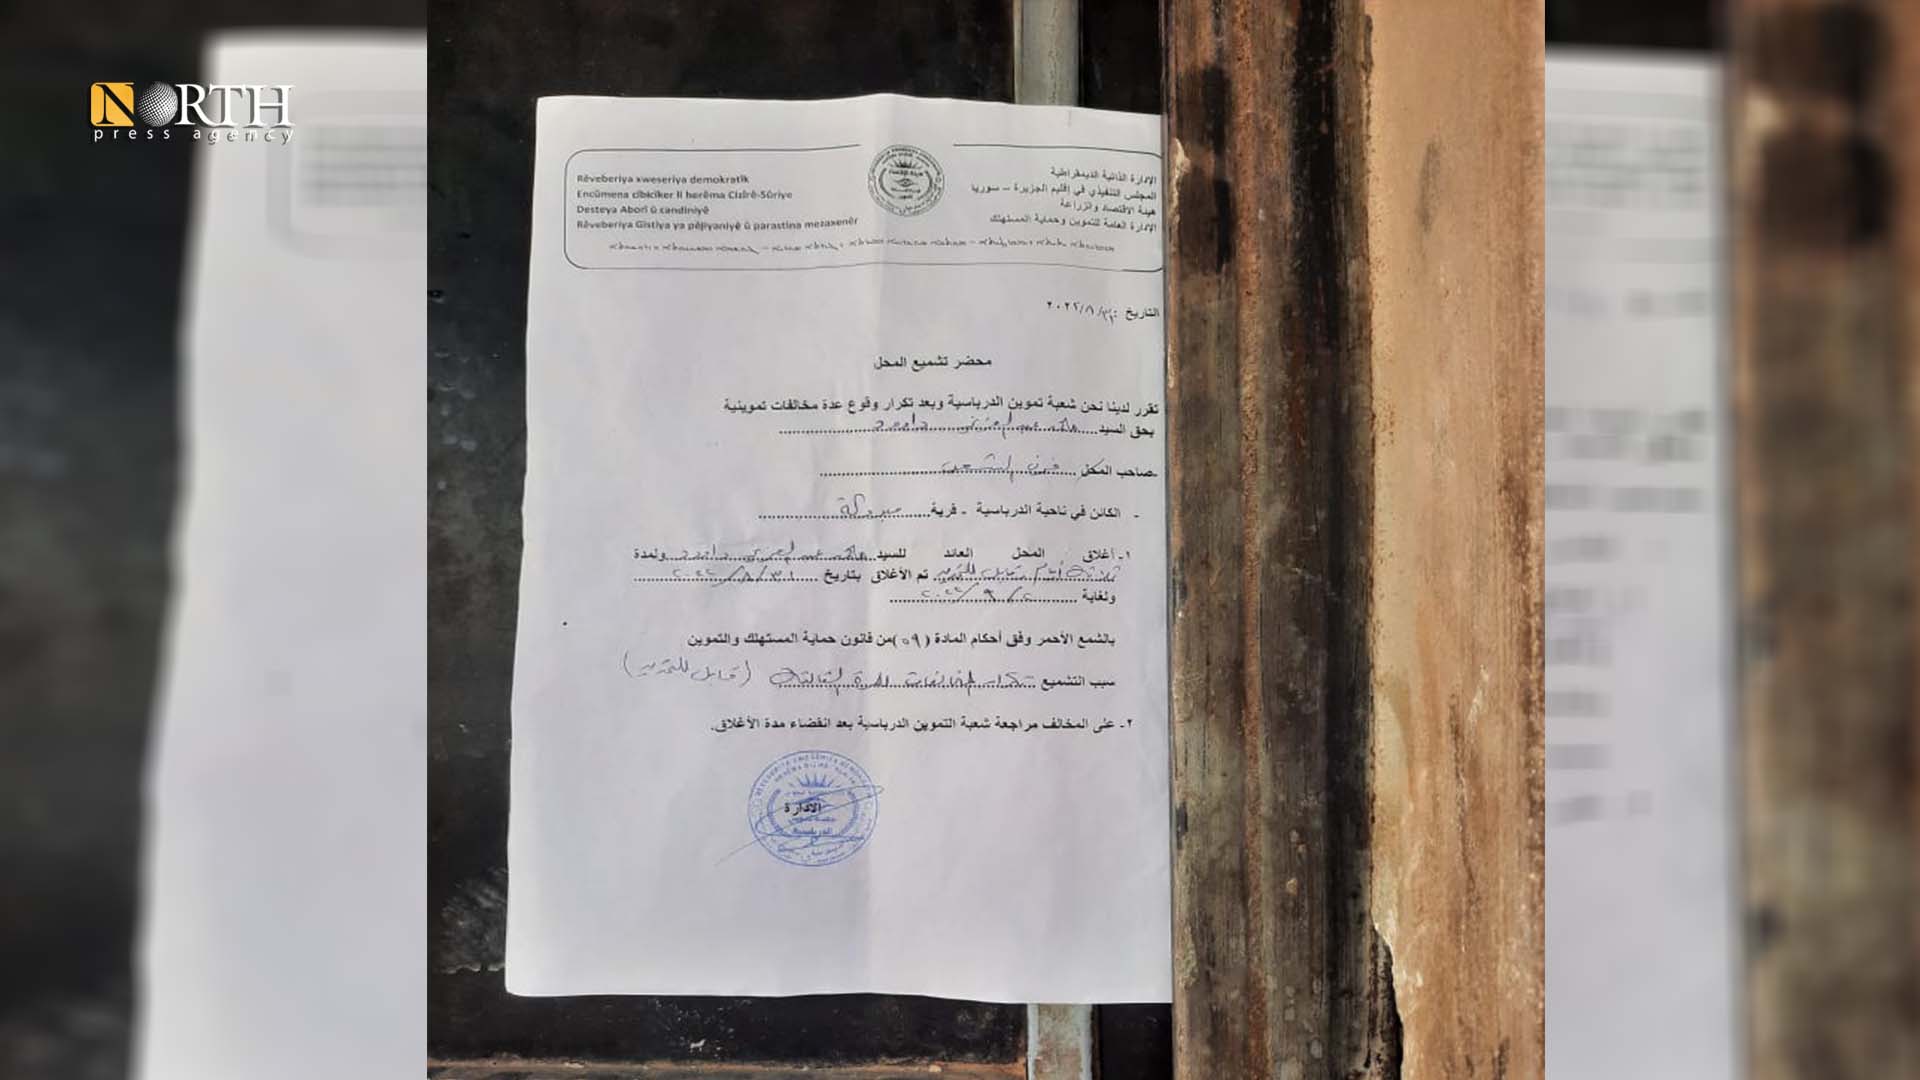 NORTH
press agency
Rêveberiya xweseriya demokratîk
Encûmena cîbicîker li herêma Cizîrê-Sûriye
Desteya Aborî û candiniyê
Rêveberiya Giştiya ya pêjiyaniyê û parastina mezaxenêr
الإدارة الذاتية الديمقراطية
المجلس التنفيذي في إقليم الجزيرة – سوريا
هيئة الاقتصاد والزراعة
الإدارة العامة للتموين وحماية المستهلك
التاريخ : ٢٠٢٢/٨/٣١
محضر تشميع المحل
تقرر لدينا نحن شعبة تموين الدرباسية وبعد تكرار وقوع عدة مخالفات تموينية
بحق السيد
-صاحب المحل ........ فرن الشعب
- الكائن في ناحية الدرباسية - قرية
١- أغلاق المحل العائد للسيد ولمدة
ثلاثة أيام قابل للتمديد تم الأغلاق بتاريخ ٢٠٢٢/٨/٣١
ولغاية ٢٠٢٢/٩/٢
بالشمع الأحمر وفق أحكام المادة (٥٩) من قانون حماية المستهلك والتموين
سبب التشميع تكرار المخالفات للمرة الثالثة (قابل للتمديد)
٢- على المخالف مراجعة شعبة التموين الدرباسية بعد انقضاء مدة الأغلاق.
الادارة
الدرباسية